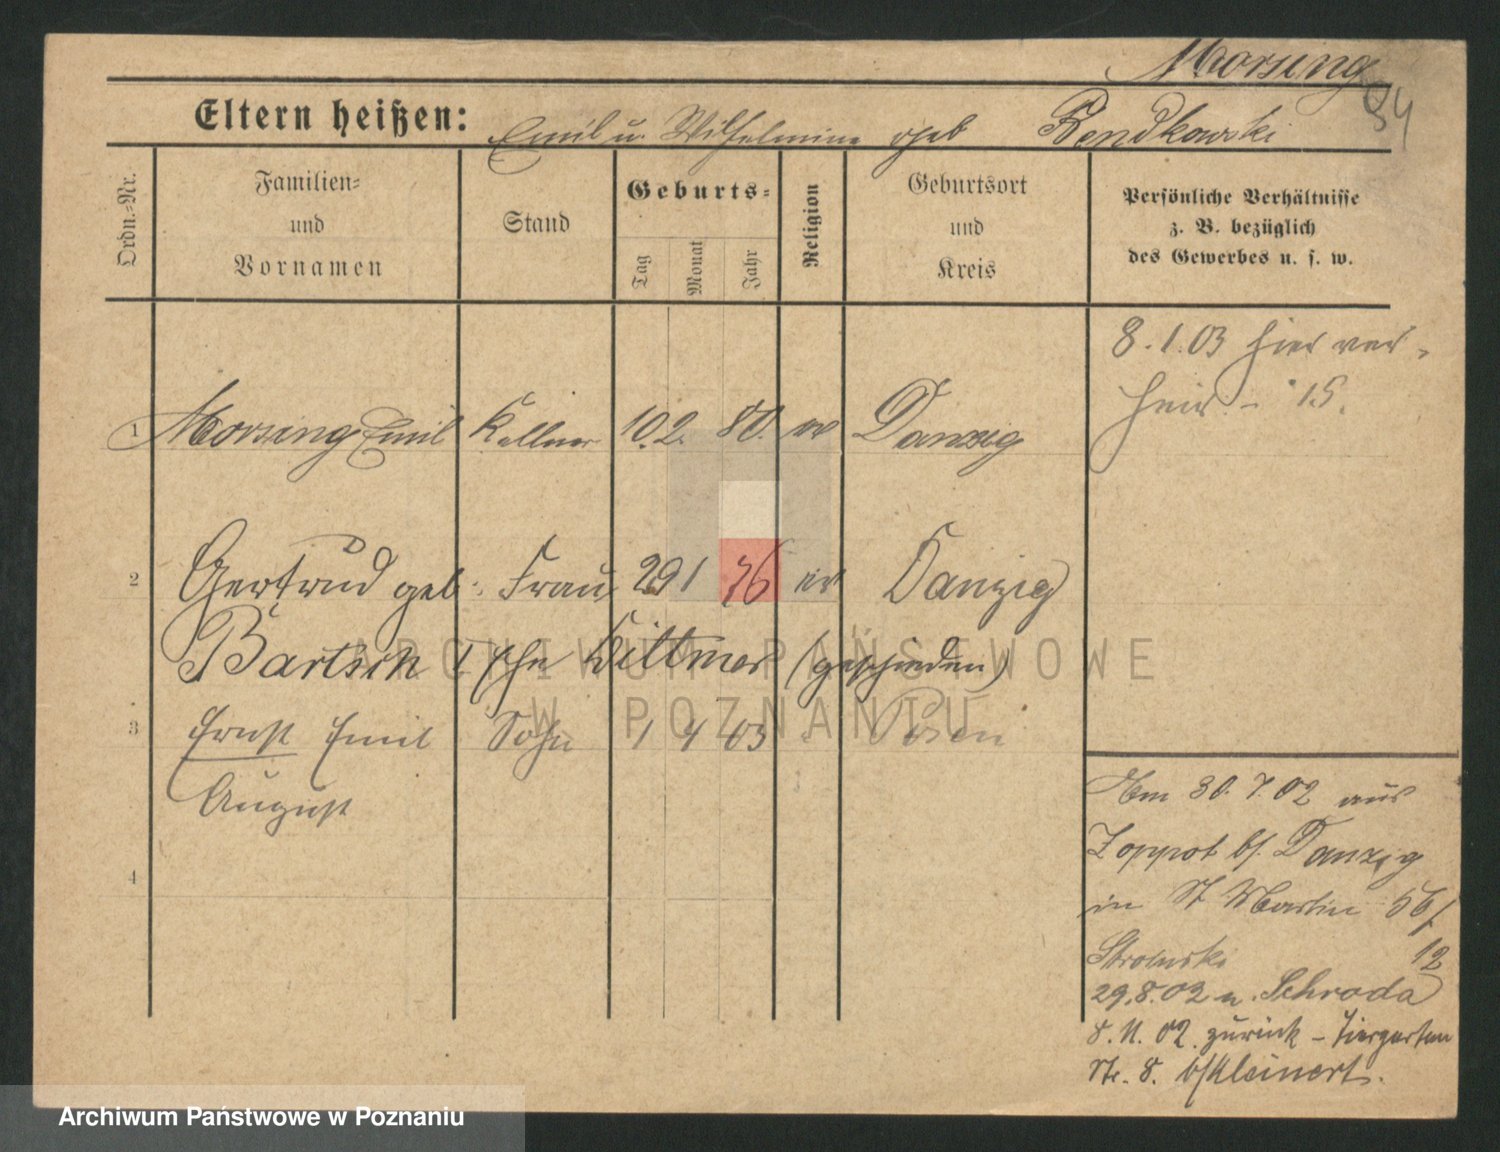 Morsing
34
Eltern heißen: Emil u. Wilhelmine geb Rendkowski
Ordn.-Nr.
Familien-
und
Vornamen
Stand
Geburts-
Tag
Monat
Jahr
Religion
Geburtsort
und
Kreis
Persönliche Verhältnisse
z. B. bezüglich
des Gewerbes u. s. w.
8.1.03 hier ver-
heir. - 15.
1 Morsing Emil Kellner 10. 2. 80. ev Danzig
2 Gertrud geb. Frau 29 1 76 ev Danzig
Bartsch I Ehe Dittmer (geschieden)
3 Ernst Emil Sohn 1 4 03 Posen
August
4
Am 30.7.02 aus
Zoppot b/. Danzig
in St Martin 56/
12
29.8.02 n. Schroda
8.11.02 zurück - Tiergarten
Str. 8. b/Kleinert.
ARCHIWUM PAŃSTWOWE
W POZNANIU
Archiwum Państwowe w Poznaniu